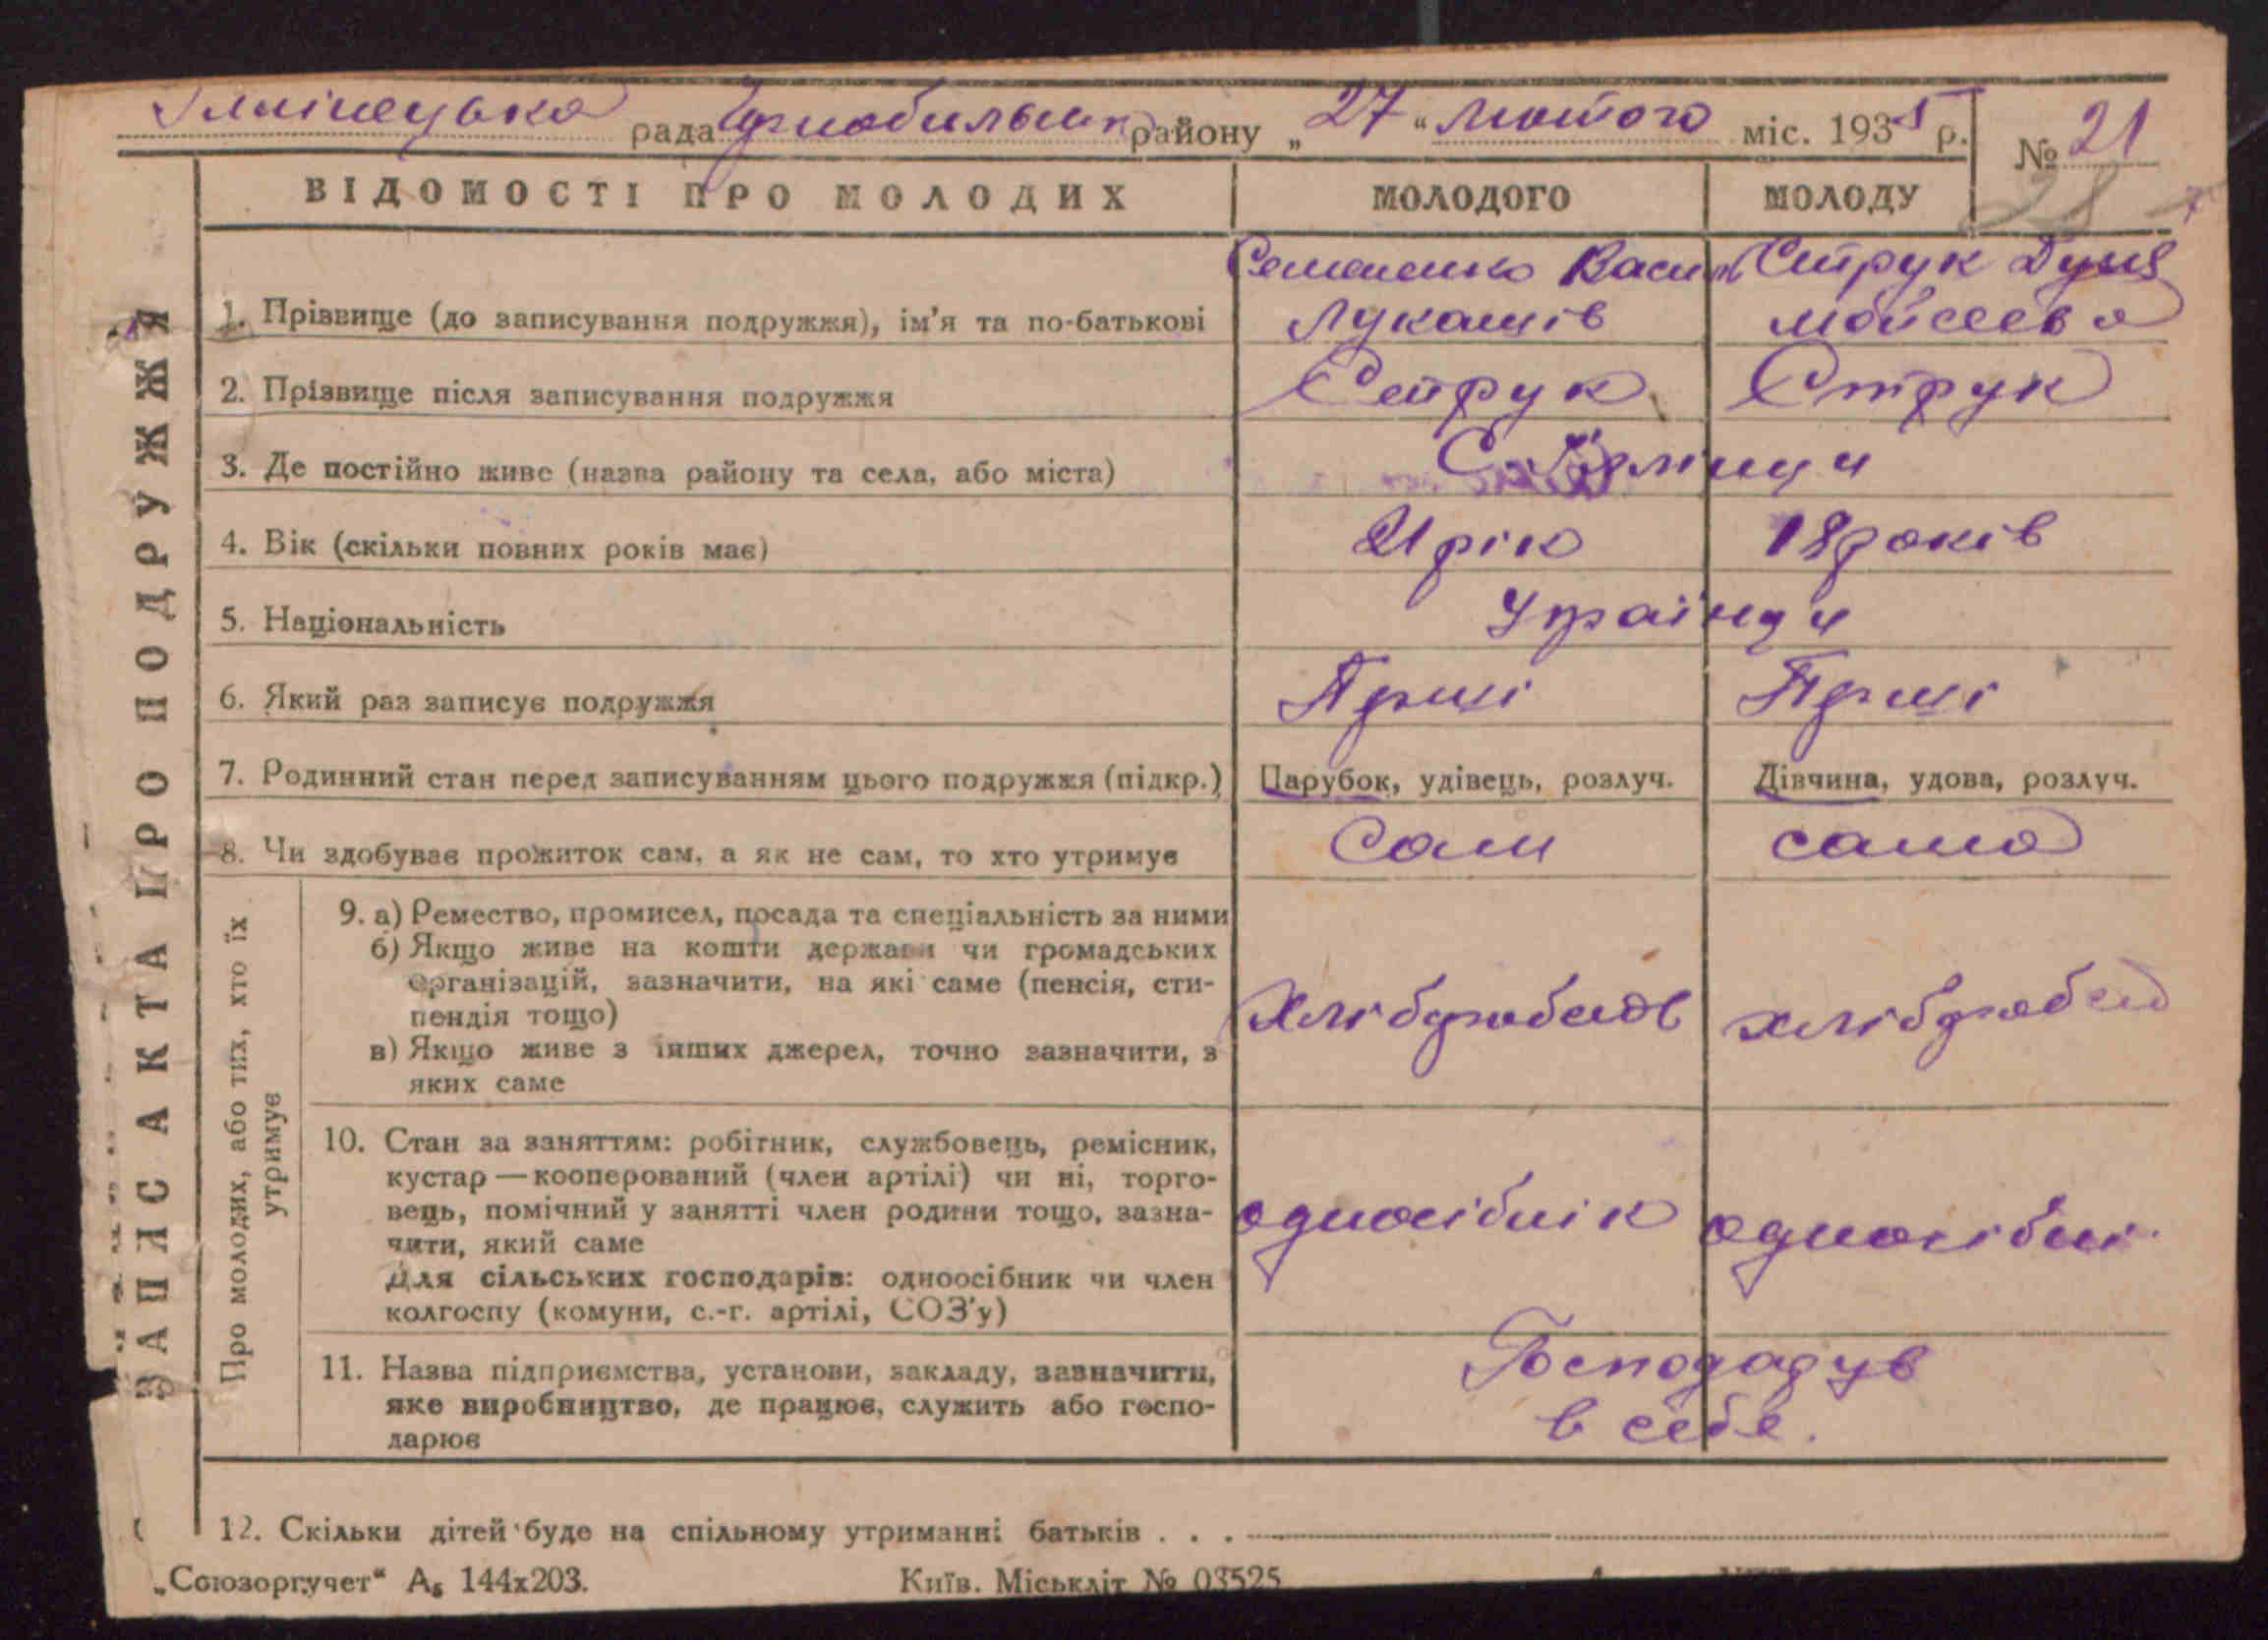 Іллінецька рада Чорнобильськ району „27“ Лютого міс. 1935 р. № 21
ВІДОМОСТІ ПРО МОЛОДИХ МОЛОДОГО МОЛОДУ
ЗАПИС АКТА ПРО ПОДРУЖЖЯ
1. Прізвище (до записування подружжя), ім'я та по-батькові Семененко Василь Струк Дуня
Лукашів Мойсеева
2. Прізвище після записування подружжя Струк Струк
3. Де постійно живе (назва району та села, або міста) С.
4. Вік (скільки повних років має) 21 рік 18 років
5. Національність Українци
6. Який раз записує подружжя Перші Перші
7. Родинний стан перед записуванням цього подружжя (підкр.) Парубок, удівець, розлуч. Дівчина, удова, розлуч.
8. Чи здобуває прожиток сам, а як не сам, то хто утримує Сам сама
Про молодих, або тих, хто їх
утримує
9. а) Ремество, промисел, посада та спеціальність за ними
б) Якщо живе на кошти держави чи громадських
організацій, зазначити, на які саме (пенсія, сти-
пендія тощо)
в) Якщо живе з інших джерел, точно зазначити, з
яких саме
10. Стан за заняттям: робітник, службовець, ремісник,
кустар — кооперований (член артілі) чи ні, торго-
вець, помічний у занятті член родини тощо, зазна-
чити, який саме
Для сільських господарів: одноосібник чи член
колгоспу (комуни, с.-г. артілі, СОЗ'у)
односібнік односібні
11. Назва підприємства, установи, закладу, зазначити,
яке виробництво, де працює, служить або госпо-
дарює
в себе.
12. Скільки дітей буде на спільному утриманні батьків . . .
„Союзоргучет“ А₅ 144х203. Київ. Міськліт № 03525